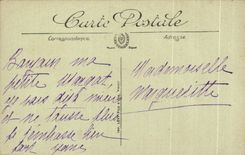 Carte Postale
Correspondance
Adresse
Bonjour ma
petite Margot,
je vais déjà mieux
et ne tousse plus
je t'embrasse bien
fort
Mademoiselle
Marguerite